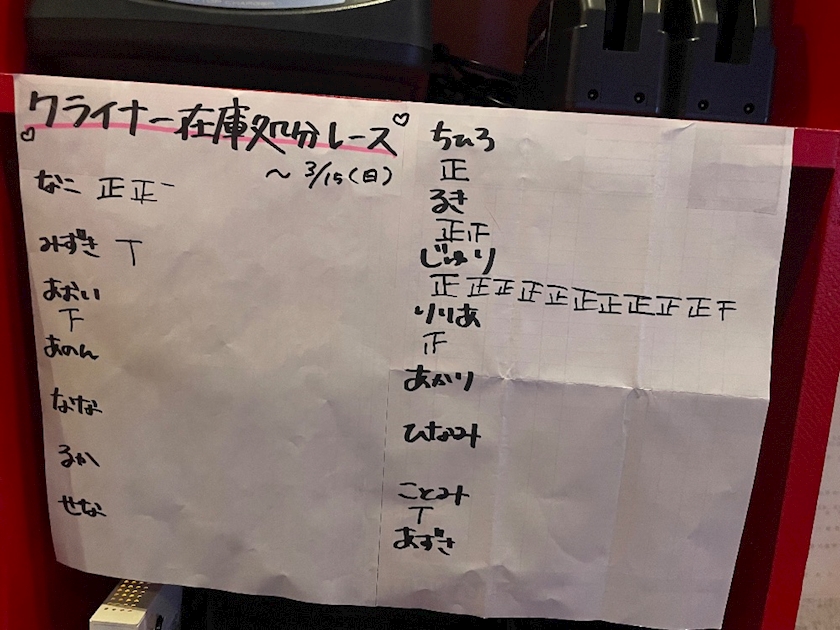 クライナー在庫処分レース
～ 3/15(日)
なこ 正正一
みずき T
あおい
下
あのん
なな
るか
せな
ちひろ
正
るき
正正
じゅり
正正正正正正正正正正下
りりあ
正
あかり
ひなみ
ことみ
T
あずき